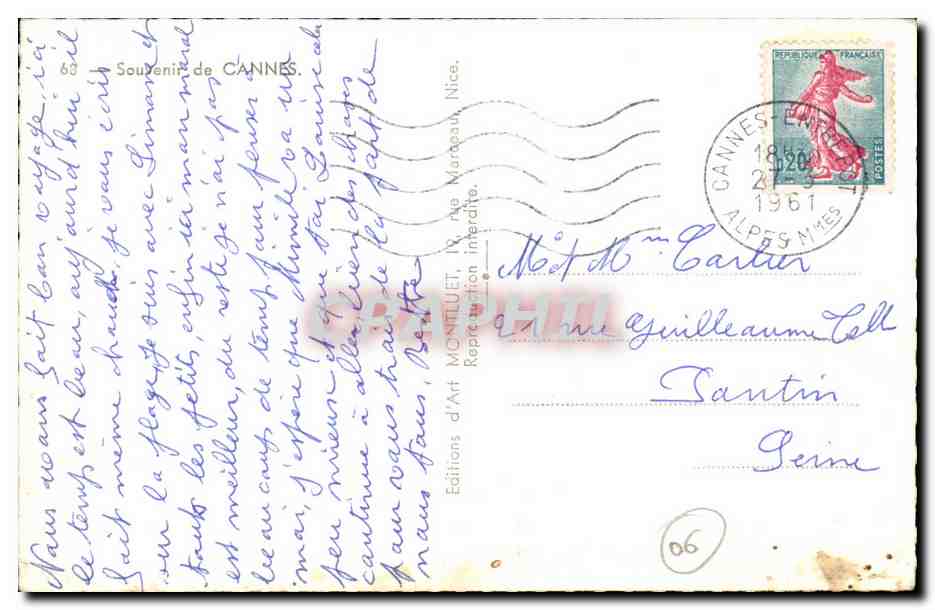 63 - Souvenir de CANNES.
Nous avons fait bon voyage, ici
le temps est beau, aujourd'hui il
fait même chaud, je vous écris
sur la plage, je suis avec Simone et
toute les petits, enfin ici mon moral
est meilleur, du reste je n'ai pas
beaucoup de temp pour penser à
moi, j'espère que Mimile va un
peu mieux et que toi Louise cela
continue à aller, bien des choses
pour vous trois de la part de
nous tous. Bette
Editions d'Art MONTLUET, 19, rue Marceau, Nice.
Reproduction interdite.
REPUBLIQUE FRANÇAISE
0,20
POSTES
CANNES-EN
18H
27
1961
ALPES Mmes
CPAPHIL
M. et Mm Cartier
21 rue Guilleaume Tell
Pantin
Seine
06